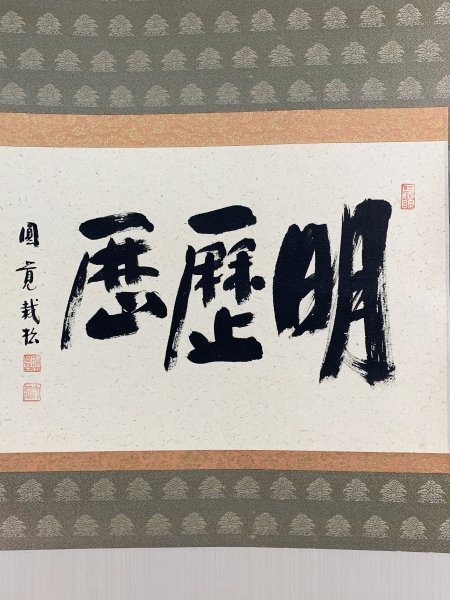 明歴歴
圓覚栽松